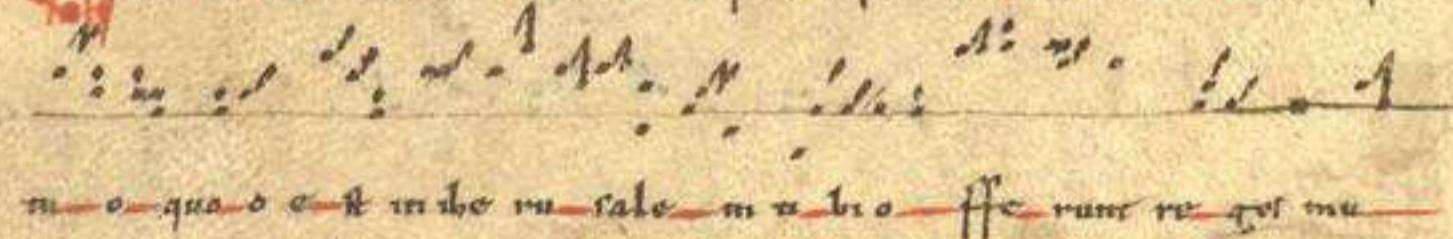 tu o quo d e st in ihe ru sale m ti bi o ffe runt re ges mu